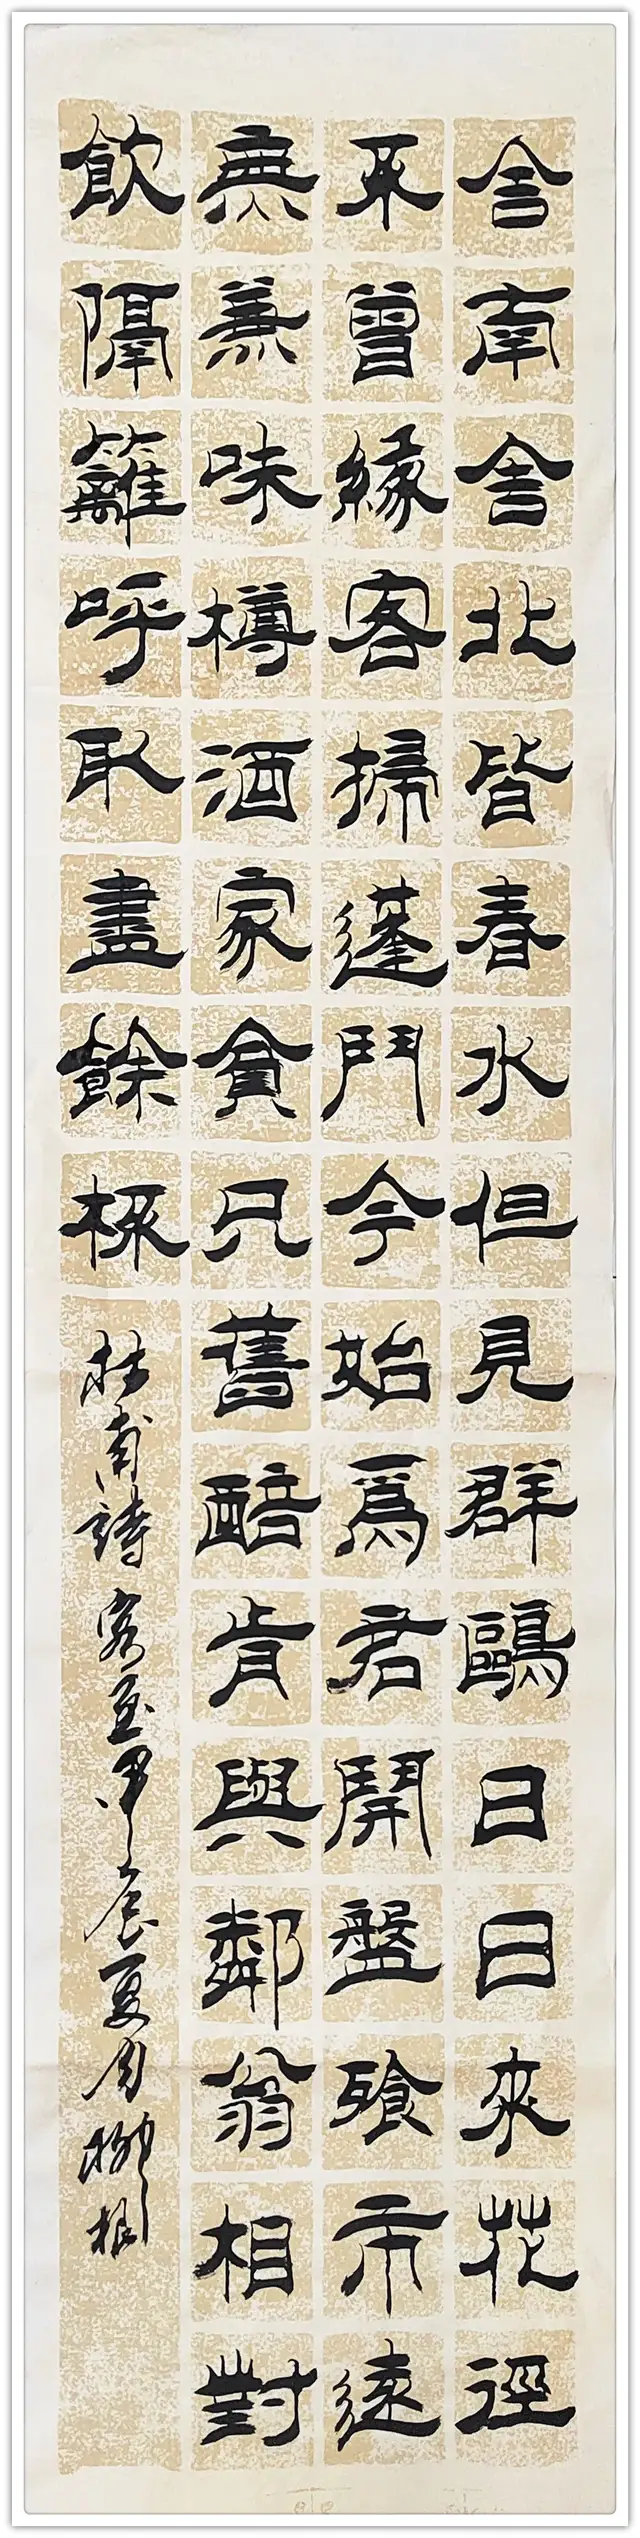 舍南舍北皆春水但見群鷗日日來花徑
不曾緣客掃蓬門今始爲君開盤飱市遠
無兼味樽酒家貧只舊醅肯與鄰翁相對
飲隔籬呼取盡餘杯
杜甫詩客至甲辰夏月柳根